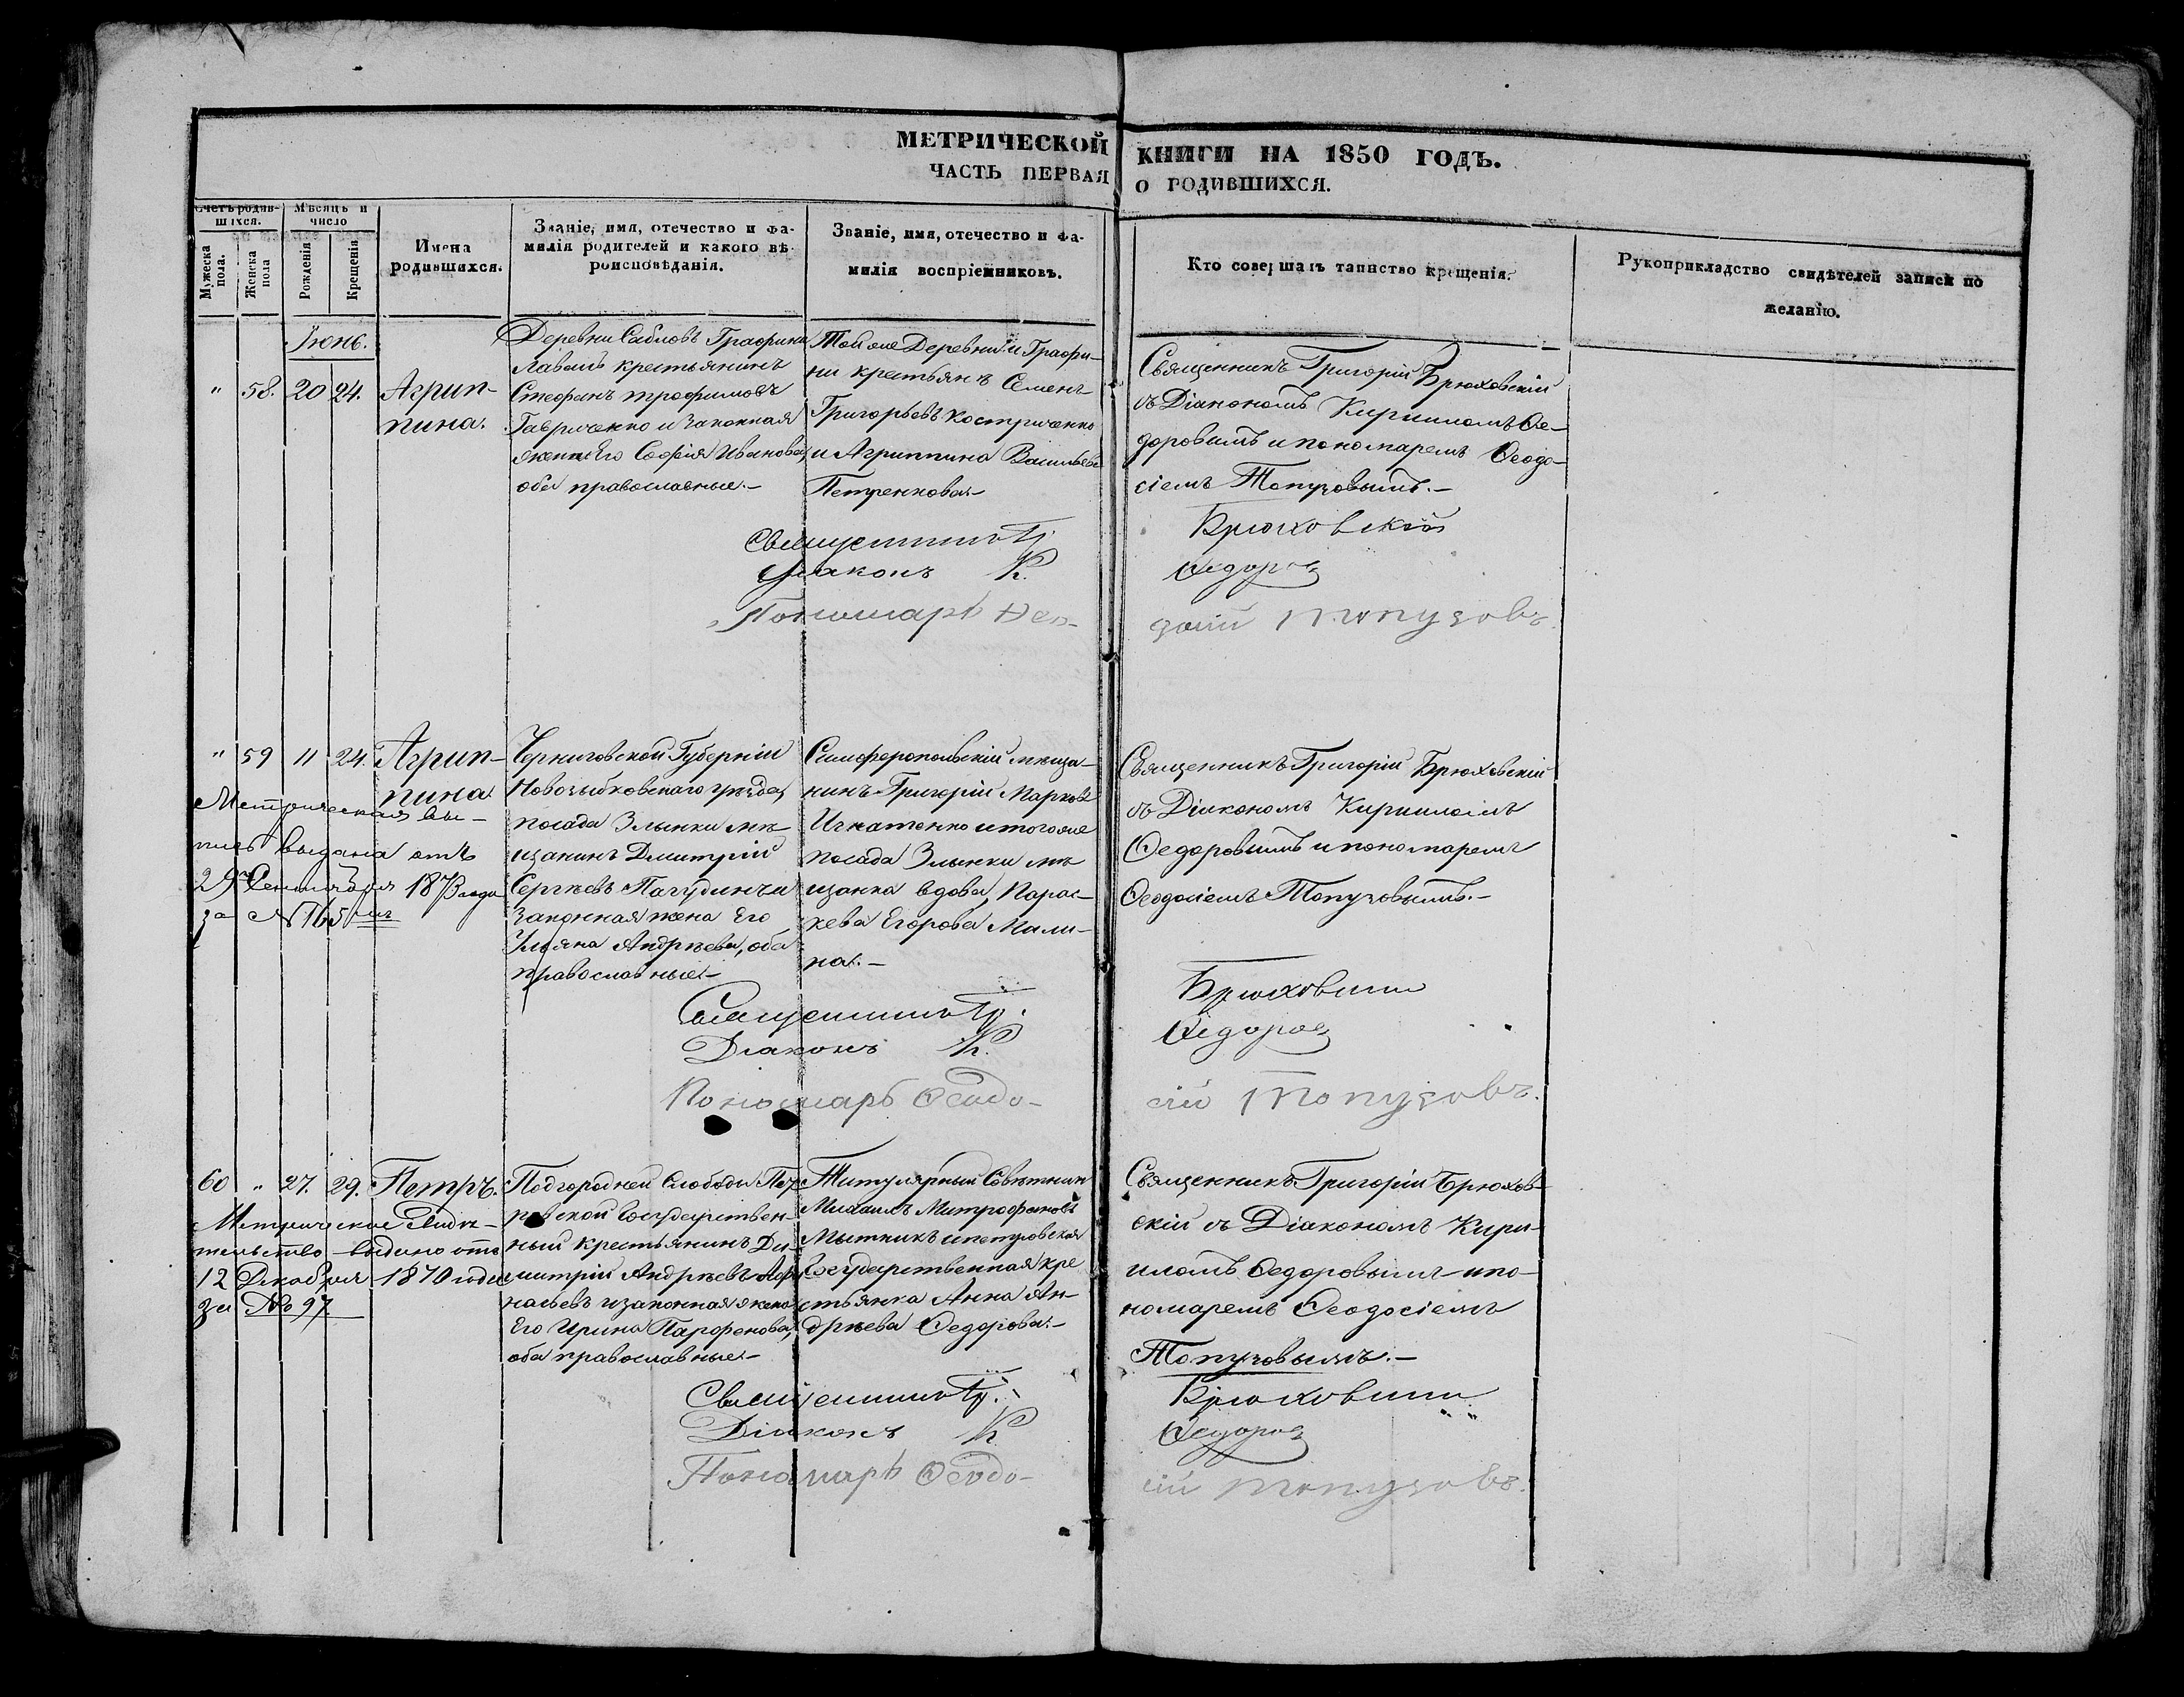 МЕТРИЧЕСКОЙ КНИГИ НА 1850 ГОДЪ.
ЧАСТЬ ПЕРВАЯ О РОДИВШИХСЯ.
Счетъ родив-
шихся.
Мужеска пола.
Женска пола
Мѣсяцъ и
число
Рожденія
Крещенія
Имена
родившихся.
Званіе, имя, отечество и фа-
милія родителей и какого вѣ-
роисповѣданія.
Званіе, имя, отечество и фа-
милія воспріемниковъ.
Кто совершалъ таинство крещенія.
Рукоприкладство свидѣтелей записи по
желанію.
Іюнь.
" 58. 20 24. Агрип-
пина.
Деревни Саблов Графини
Лаваль крестьянинъ
Стефанъ трофимовъ
Гавриченко и Законная
жена Его Софія Иванова,
оба православные.-
Той же Деревни и Графи-
ни крестьян Семенъ
Григорьевъ Костриченко
и Агриппина Васильева
Петренкова.-
Священникъ Григорій Брюховскій
съ Діакономъ Кирилломъ Ѳе-
доровымъ и пономаремъ Ѳеодо-
сіемъ Топузовымъ.-
Священникъ Гр. Брюховскій
Діаконъ К. Ѳедоровъ
Пономарь Ѳео- Топузовъ
" 59 11 24. Агрип-
пина
Метрическая вы-
пись выдана отъ
29 Сентября 187 года
за № 165
Черниговской Губерніи
Новозыбковскаго уѣзда,
посада Злынки мѣ-
щанинъ Дмитрій
Сергѣевъ и
законная жена Его
Ульяна Андрѣева, оба
православные.-
Симферопольскій мѣща-
нинъ Григорій Марковъ
Игнатенко и тогоже
посада Злынки мѣ
щанка вдова, Парас-
кева Егорова Мали-
на.-
Священникъ Григорій Брюховскій
съ Діакономъ Кирилломъ
Ѳедоровымъ и пономаремъ
Ѳеодосіемъ Топузовымъ.-
Священникъ Гр. Брюховскій
Діаконъ К. Ѳедоровъ
Пономарь Ѳеодо-сій Топузовъ.
60 " 27. 29. Петръ.
Метрическое Свидѣ-
тельство выдано отъ
12 Декабря 1870 года
за № 97
Подгородней Слободы Пет
ровской Государствен-
ный крестьянинъ Ди-
митрій Андрѣевъ Афа
насьевъ и законная жена
Его Ирина Парфенова,
оба православные.-
Титулярный Совѣтникъ
Михаилъ Митрофановъ
Мытникъ и петровская
Государственная кре
стьянка Анна Ан-
дрѣева Ѳедорова.-
Священникъ Григорій Брюхов-
скій съ Діакономъ Кири-
ломъ Ѳедоровымъ и по-
номаремъ Ѳеодосіемъ
Топузовымъ.-
Священникъ Гр. Брюховскій
Діаконъ К. Ѳедоровъ
Пономарь Ѳеодо-сій Топузовъ.